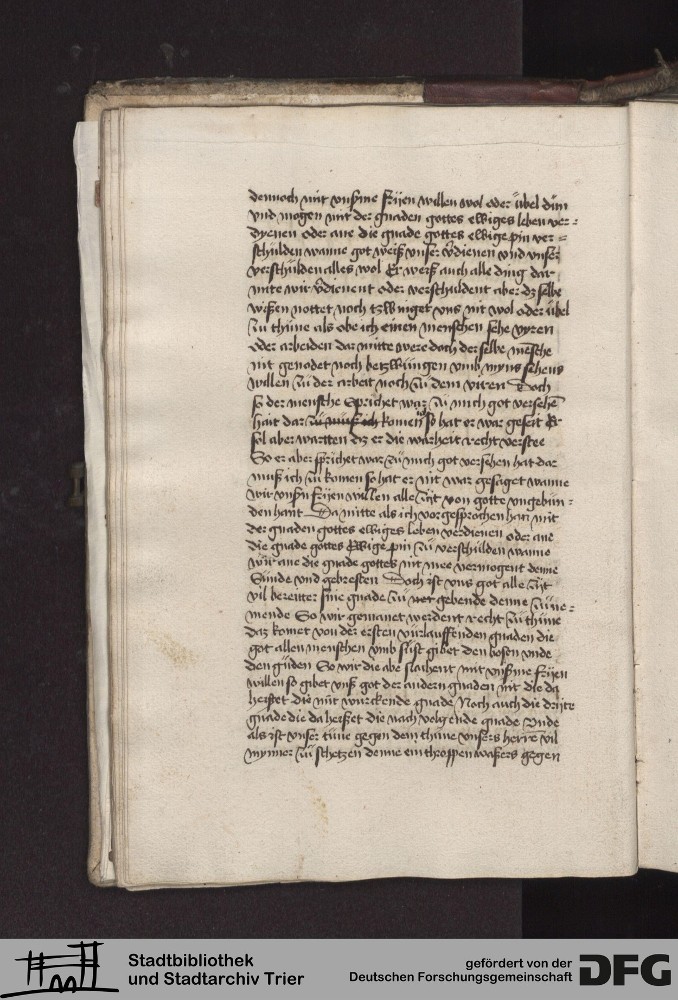 dennoch mit vnsme frijen willen wol oder übel dün
vnd mogen mit der gnaden gottes ewiges leben ver=
dyenen oder ane die gnade gottes ewige pin ver=
schulden wanne got weiß vnser v̄dienen vnd vnser
verschülden alles wol Er weiß auch alle ding dar
mitte wir v̄dienent oder verschuldent aber dz selbe
wißen nottet noch tzwinget vns nit wol oder übel
zü thüne als obe ich einen menschen sehe vyren
oder arbeiden dar mitte were doch der selbe mēsche
nit genodet noch betzwüngen vmb myns sehens
willen zü der arbeit noch zü dem viren Doch
so der mensche sprichet waz zü mich got versehē
hait dar zü muß ich komen so hat er war geseit Er
sol aber wartten dz er die warheit recht verstee
So er aber sprichet war zü mich got versehen hat dar
muß ich zü komen so hat er nit war gesaget wanne
wir vnsn frijen willen alle zijt von gotte vngebün=
den hant Da mitte als ich vor gesprochen han mit
der gnaden gottes ewiges leben verdienen oder ane
die gnade gottes Ewige pin zü verschulden wanne
wir ane die gnade gottes nit mee vermogent denne
Sünde vnd gebresten Doch ist vns got alle zijt
vil bereiter sine gnade zü gebende denne zü ne=
mende So wir gemanet werdent recht zü thüne
daz komet von der ersten vürlauffenden gnaden die
got allen menschen vmb sust gibet den bosen vnde
den güden So wir die abe slachent mit vnsme frijen
willen so gibet vnß got der andern gnaden nit die da
heißet die mit würckende gnade Noch auch die dritte
gnade die da heißet die nach volgende gnade Vnde
als ist vnser tüne gegen dem thüne vnsers herrē vil
mynner zü schetzen denne ein throppen waßers gegen
Stadtbibliothek
und Stadtarchiv Trier
gefördert von der
Deutschen Forschungsgemeinschaft
DFG